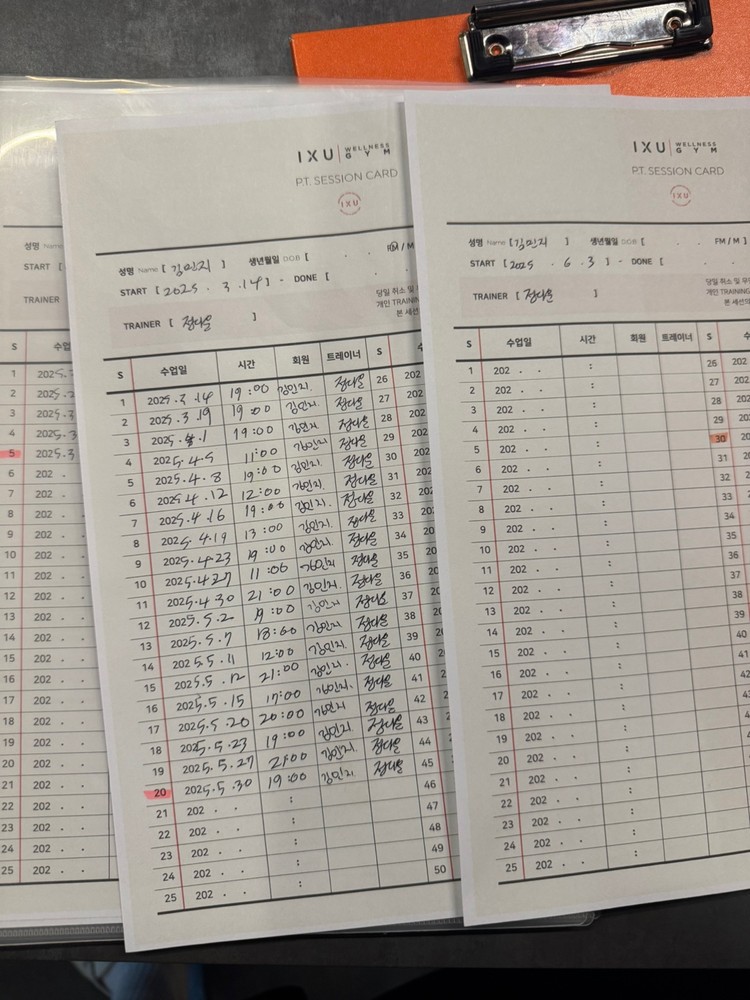 성명 Name
START [
TRAINER
S 수업
1 2025.
2 2025.
3 2025.3
4 2025.3
5 2025.3
6 202 .
7 202 . .
8 202 . .
9 202 . .
10 202 . .
11 202 . .
12 202 . .
13 202 . .
14 202 . .
15 202 . .
16 202 . .
17 202 . .
18 202 . .
19 202 . .
20 202 . .
21 202 . .
22 202 . .
23 202 . .
24 202 . .
25 202 . .
IXU WELLNESS GYM
P.T. SESSION CARD
IXU
성명 Name [ 김민지 ] 생년월일 DOB [ . . FM / M
START [ 2025 . 3 .14 ] - DONE [ . .
당일 취소 및
개인 TRAINING
본 세션
TRAINER [ 정다운 ]
S 수업일 시간 회원 트레이너 S
1 2025.3.14 19:00 김민지 정다운 26 202
2 2025.3.19 19:00 김민지 정다운 27 202
3 2025.4.1 19:00 김민지 정다운 28 202
4 2025.4.5 11:00 김민지 정다운 29 202
5 2025.4.8 19:00 김민지 정다운 30 202
6 2025.4.12 12:00 김민지 정다운 31 202
7 2025.4.16 19:00 김민지 정다운 32 202
8 2025.4.19 13:00 김민지 정다운 33 202
9 2025.4.23 19:00 김민지 정다운 34 202
10 2025.4.27 11:00 김민지 정다운 35 20
11 2025.4.30 21:00 김민지 정다운 36 20
12 2025.5.2 19:00 김민지 정다운 37 20
13 2025.5.7 18:00 김민지 정다운 38 20
14 2025.5.11 12:00 김민지 정다운 39 20
15 2025.5.12 21:00 김민지 정다운 40 2
16 2025.5.15 17:00 김민지 정다운 41 2
17 2025.5.20 20:00 김민지 정다운 42 2
18 2025.5.23 19:00 김민지 정다운 43 2
19 2025.5.27 21:00 김민지 정다운 44 2
20 2025.5.30 19:00 김민지 정다운 45
21 202 . . : 46
22 202 . . : 47
23 202 . . : 48
24 202 . . : 49
25 202 . . : 50
IXU WELLNESS GYM
P.T. SESSION CARD
IXU
성명 Name [ 김민지 ] 생년월일 DOB [ . . FM / M ]
START [ 2025 . 6 . 3 ] - DONE [ . .
당일 취소 및
개인 TRAINING
본 세션
TRAINER [ 정다운 ]
S 수업일 시간 회원 트레이너 S
1 202 . . : 26 202
2 202 . . : 27 202
3 202 . . : 28 202
4 202 . . : 29 202
5 202 . . : 30 202
6 202 . . : 31 202
7 202 . . : 32 20
8 202 . . : 33 20
9 202 . . : 34 20
10 202 . . : 35
11 202 . . : 36
12 202 . . : 37
13 202 . . : 38
14 202 . . : 39
15 202 . . : 40
16 202 . . : 41
17 202 . . : 42
18 202 . . : 43
19 202 . . :
20 202 . . :
21 202 . . :
22 202 . . :
23 202 . . :
24 202 . . :
25 202 . . :